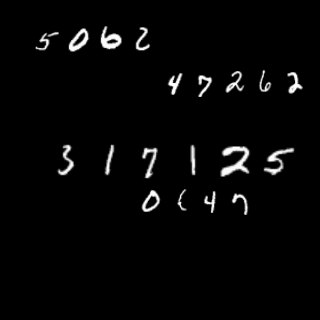 5062
47262
317125
0647